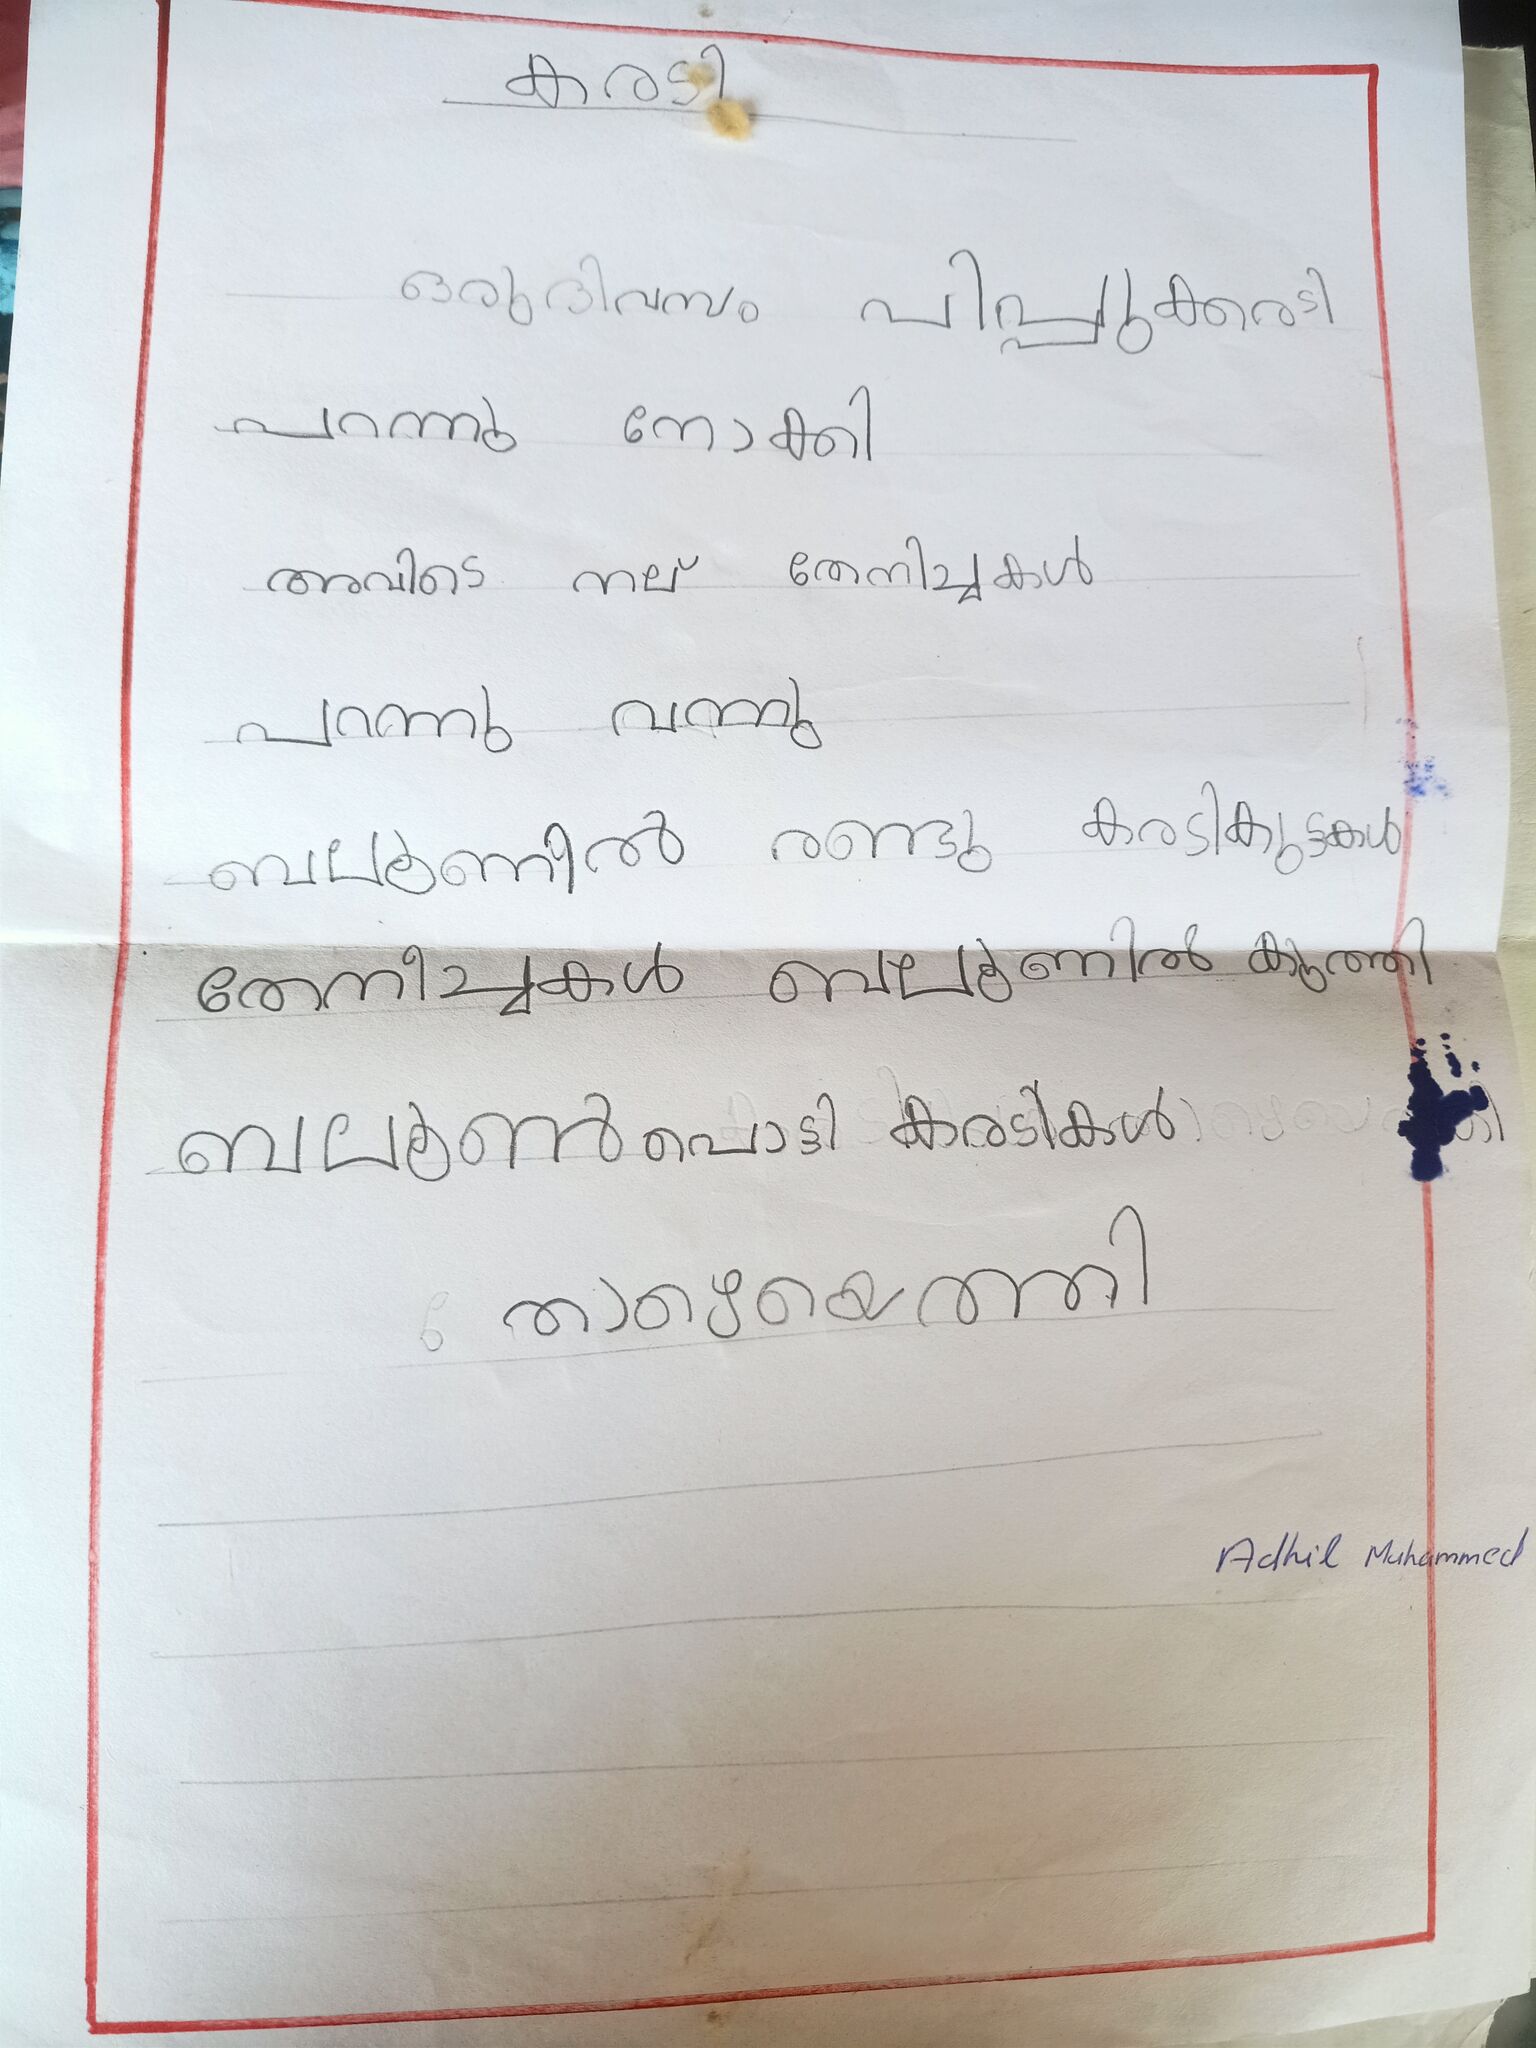 കരടി
ഒരുദിവസം പിപ്പുക്കരടി
പറന്നു നോക്കി
അവിടെ നല് തേനിച്ചകൾ
പറന്നു വന്നു
ബലൂണിൽ രണ്ടു കരടികുട്ടകൾ
തേനീച്ചകൾ ബലൂണിൽ കുത്തി
ബലൂൺപൊട്ടി കരടികൾ
താഴെയെത്തി
Adhil Muhammed